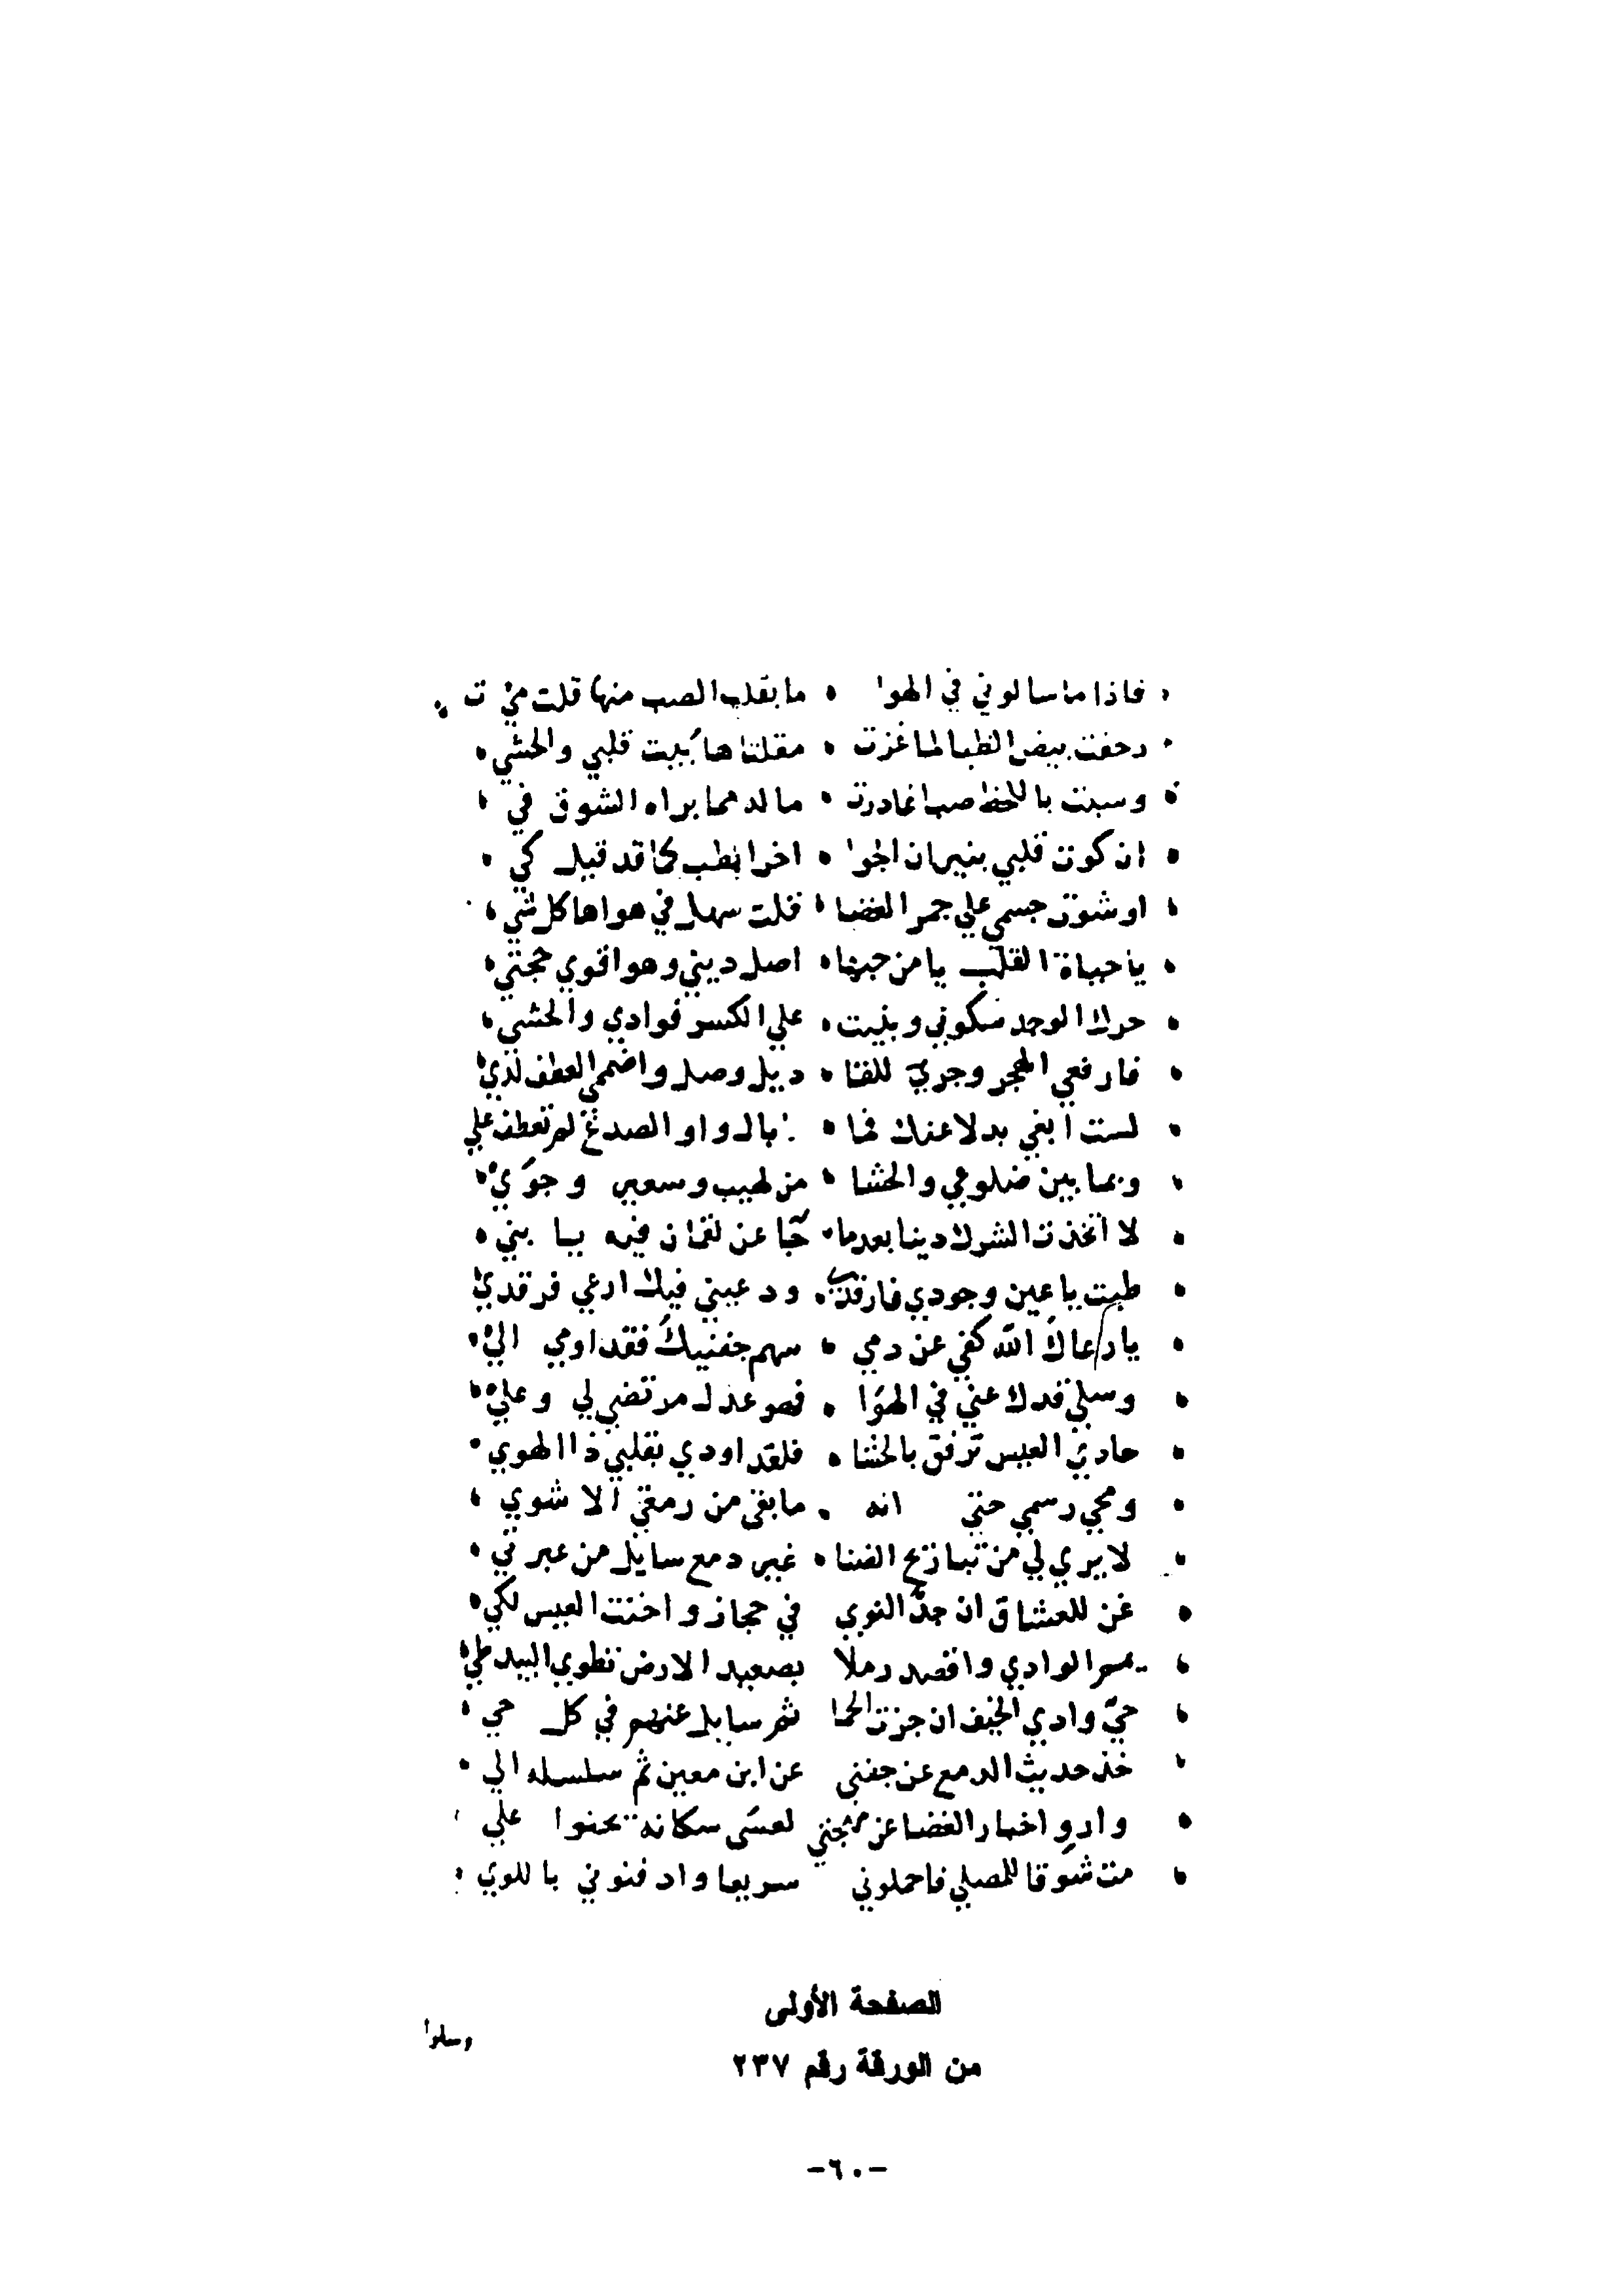 فاذا ما سالوني في الهوا ما بقلب الصب منها قلت مي ت
رحفت ببيض الظبا لما غزت مقلتاها بيت قلبي والحشي
وسبت باللحظ صبا غادرت ماله مما براه الشوق في
ان كوت قلبي بنيران الجوا اخرا لطب كما قد قيل كي
او شوت جسمي علي جمر الغضا قلت سهل في هواها كل شي
يا حياة القلب يا من حبها اصل ديني وهو اقوي حجتي
حرك الوجد سكوني وبنيت علي الكسر فوادي والحشي
فارفعي الهجر وجري للفنا ديل وصل واضمي العطف لدي
لست ابغي بدلا عنك فما بال واو الصدغ لم تعطف علي
وبما بين ضلوعي والحشا من لهيب وسعير وجوي
لا اتخذت الشرك دينا بعد ما جا عن لقمان فيه يا بني
طبت يا عين وجودي فارقدي ودعيني فيك ارعي فرقدي
يا رعاك الله كفي عن دمي سهم جفنيك فقد اومي الي
وسلي قدك عني في الهوا فهو عدل مرتضي لي وعلي
حادي العيس ترفق بالحشا فلقد اودي بقلبي ذا الهوي
ومحي رسمي حتي انه ما بقي من رمقي الا شوي
لا يري لي من تباريح الضنا غير دمع سايل من عبرتي
غن للعشاق ان جد النوي في حجاز واخنت العيس لكي
الوادي واقصد رملا بصعيد الارض تطوي البيد طي
حي وادي الخيف ان جزت الحما ثم سايل عنهم في كل حي
خذ حديث الدمع عن جفني عن ابن معين ثم سلسله الي
وارو اخبار الغضا عن مهجتي لعسي سكانه تحنوا علي
مت شوقا للمصلي فاحملوني سريعا وادفنوني باللوي
الصفحة الأولى
وسلوا
من الورقة رقم ٢٣٧
-٦٠-